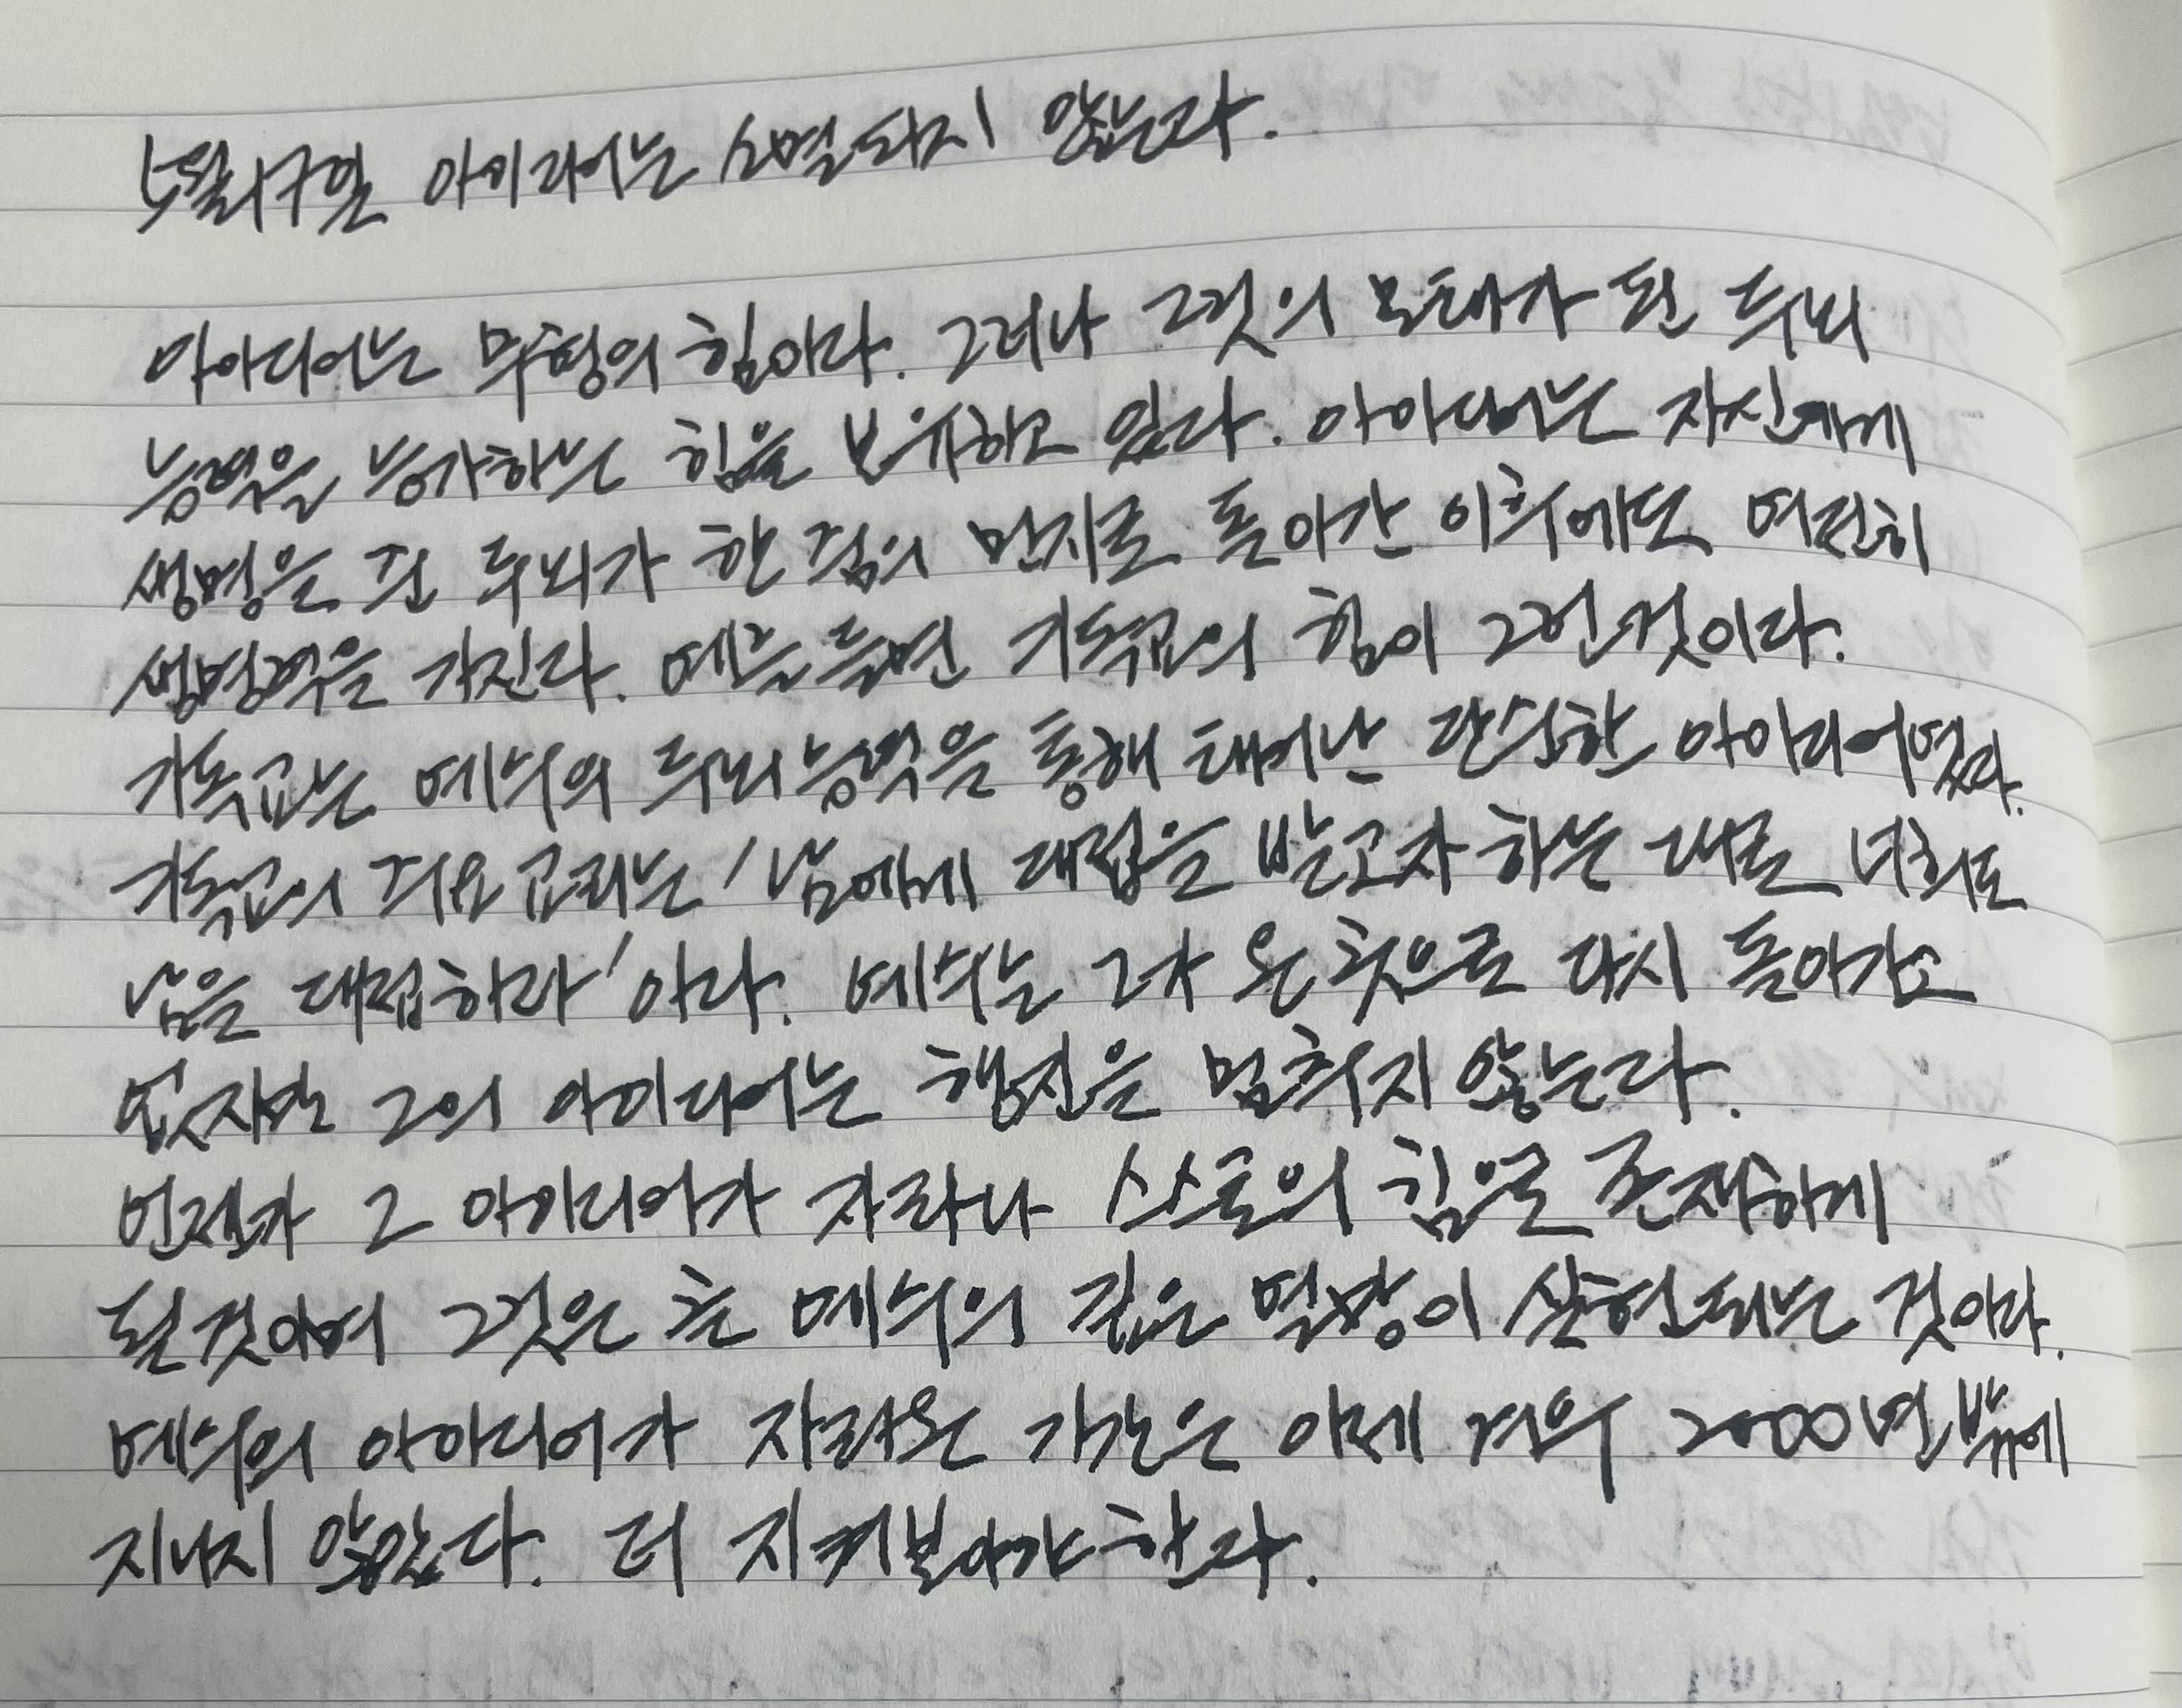 5월19일 아이디어는 소멸되지 않는다.
아이디어는 무형의 힘이다. 그러나 그것의 모태가 된 두뇌
능력을 능가하는 힘을 보유하고 있다. 아이디어는 자신에게
생명을 준 두뇌가 한 줌의 먼지로 돌아간 이후에도 여전히
생명력을 가진다. 예를들면 기독교의 힘이 그런것이다.
기독교는 예수의 두뇌능력을 통해 태어난 단순한 아이디어였다.
기독교의 주요 교리는 '남에게 대접을 받고자 하는 대로 너희도
남을 대접하라'이다. 예수는 그가 온 곳으로 다시 돌아가고
없지만 그의 아이디어는 행진을 멈추지 않는다.
언젠가 그 아이디어가 자라나 스스로의 힘으로 존재하게
될것이며 그것은 곧 예수의 깊은 열망이 실현되는 것이다.
예수의 아이디어가 자라온 기간은 이제 겨우 2000년밖에
지나지 않았다. 더 지켜보아야 한다.